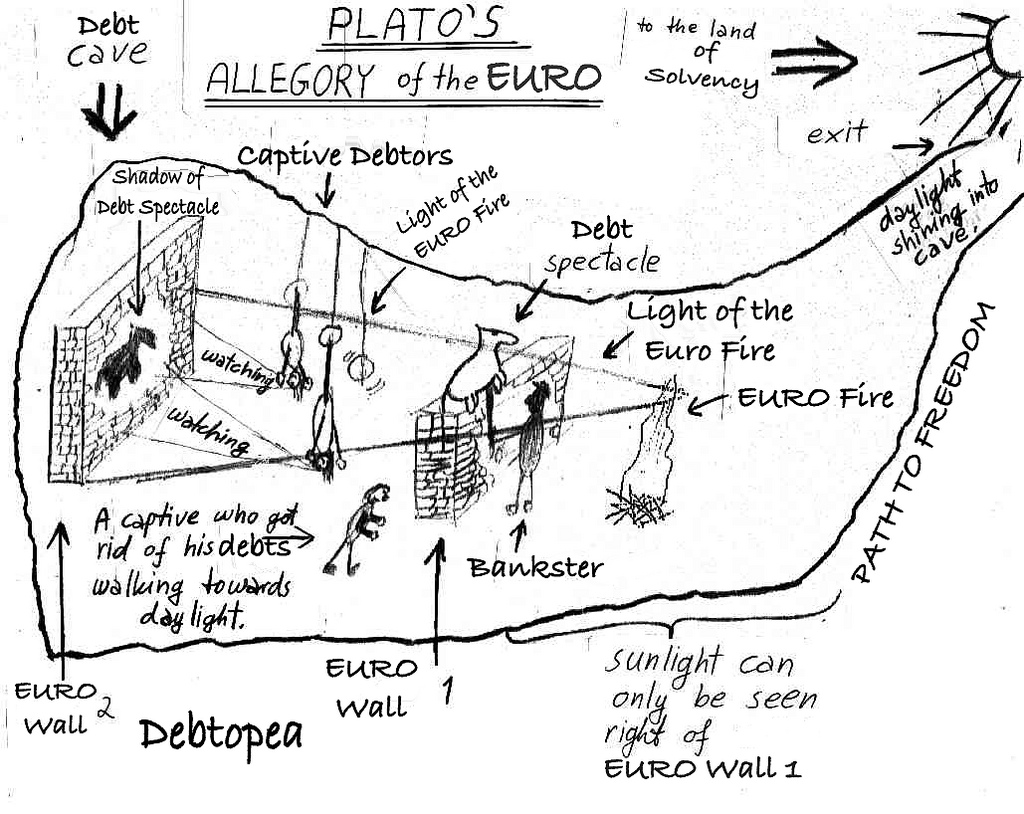 Debt
cave
PLATO'S
ALLEGORY of the EURO
to the land
of
Solvency
exit
daylight
shining into
cave.
Captive Debtors
Shadow of
Debt Spectacle
Light of the
EURO Fire
Debt
spectacle
Light of the
Euro Fire
EURO Fire
watching
watching
A captive who got
rid of his debts
walking towards
daylight.
Bankster
PATH TO FREEDOM
EURO
Wall 2
EURO
Wall 1
Debtopea
sunlight can
only be seen
right of
EURO Wall 1